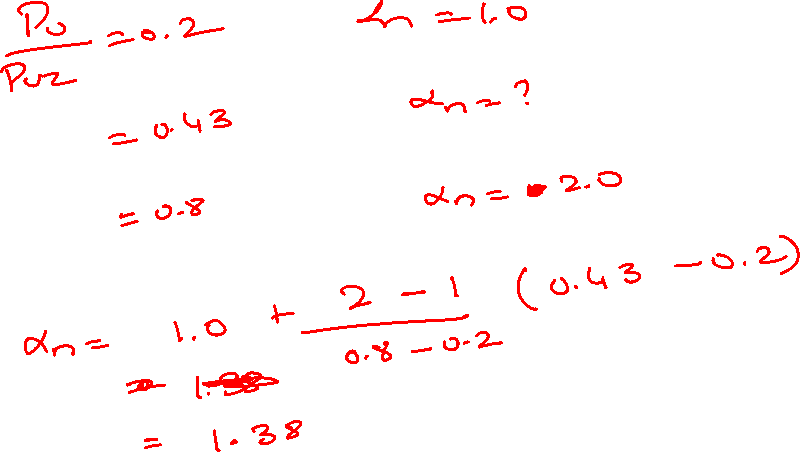 Pu/Puz = 0.2 αn = 1.0
= 0.43 αn = ?
= 0.8 αn = 2.0
αn = 1.0 + (2 - 1)/(0.8 - 0.2) (0.43 - 0.2)
= 1.38